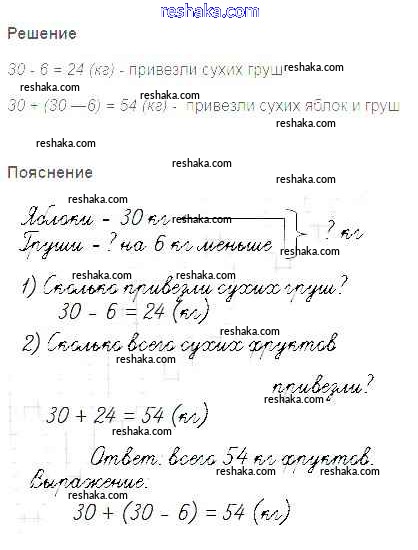 reshaka.com
Решение
30 - 6 = 24 (кг) - привезли сухих груш
reshaka.com
reshaka.com
reshaka.com
30 + (30 —6) = 54 (кг) - привезли сухих яблок и груш
reshaka.com
reshaka.com
reshaka.com
Пояснение
reshaka.com
reshaka.com
Яблоки - 30 кг
reshaka.com
Груши - ? на 6 кг меньше
? кг
reshaka.com
reshaka.com
reshaka.com
1) Сколько привезли сухих груш?
30 - 6 = 24 (кг)
reshaka.com
2) Сколько всего сухих фруктов
reshaka.com
привезли?
reshaka.com
30 + 24 = 54 (кг)
reshaka.com
Ответ: всего 54 кг фруктов.
reshaka.com
reshaka.com
Выражение:
reshaka.com
30 + (30 - 6) = 54 (кг)
reshaka.com